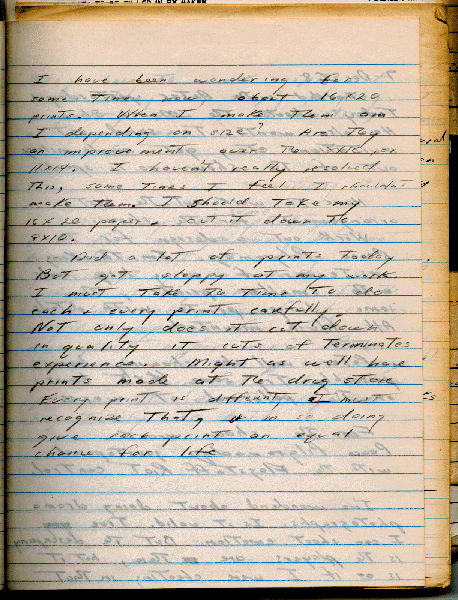 I have been wondering for
some time now about 16x20
prints. When I make them am
I depending on size? Are they
an improvement over the 8x10 or
11x14. I haven't really resolved
this, some times I feel I shouldn't
make them. I should take my
16x20 paper, cut it down to
8x10.
Did a lot of prints today
But got sloppy at my work.
I must take the time to do
each & every print carefully.
Not only does it cut down
in quality it cuts of terminates
experience. Might as well have
prints made at the drug store
Every print is different, I must
recognize that, in so doing
give each print an equal
chance for life